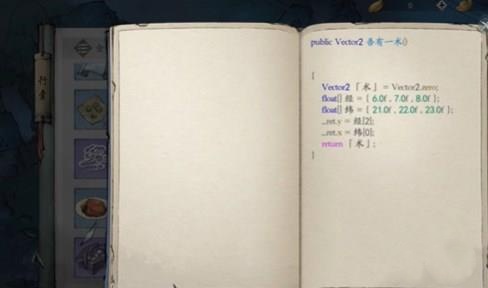 行囊
public Vector2 吾有一术()
{
Vector2 「术」 = Vector2.zero;
float[] 经 = { 6.0f , 7.0f , 8.0f };
float[] 纬 = { 21.0f , 22.0f , 23.0f };
_ret.y = 经[2];
_ret.x = 纬[0];
return 「术」 ;
}